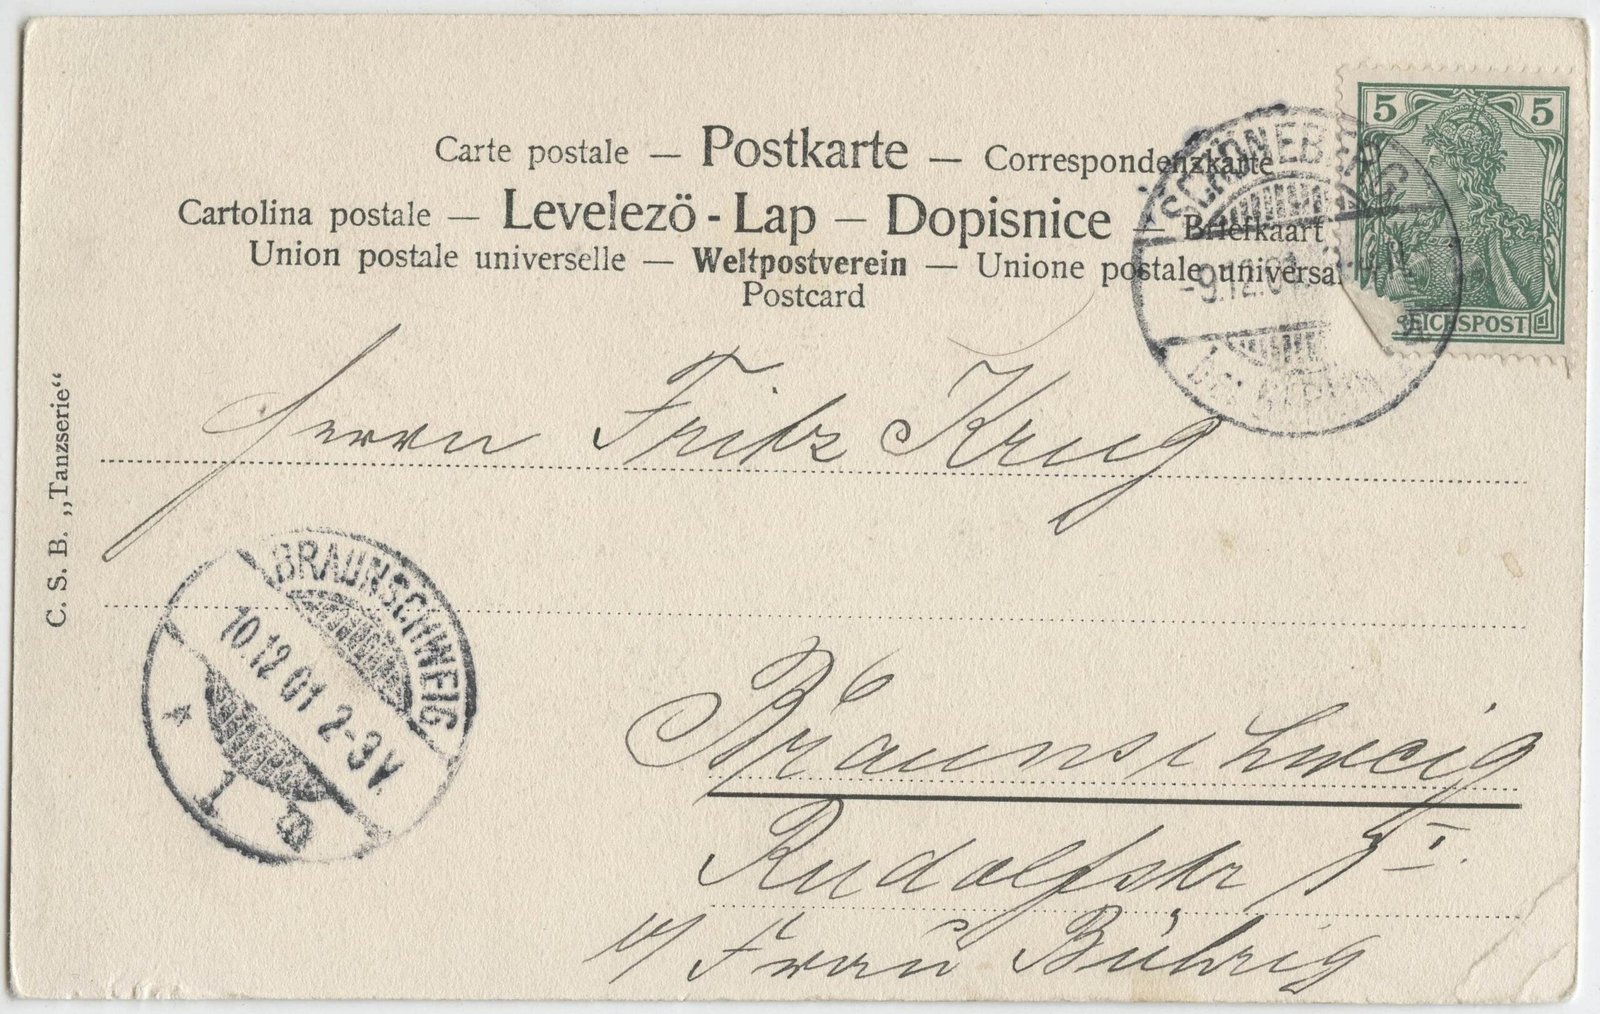 Carte postale — Postkarte — Correspondenzkarte
Cartolina postale — Levelezö - Lap — Dopisnice — Briefkaart
Union postale universelle — Weltpostverein — Unione postale universa
Postcard
5 5
REICHSPOST
SCHÖNEBERG
-9.12.01
bei BERLIN
C. S. B. „Tanzserie“
Herrn Fritz Krug
BRAUNSCHWEIG
10.12 01 2-3V.
Braunschweig
Rudolfstr 1 I.
b/ Frau Bührig